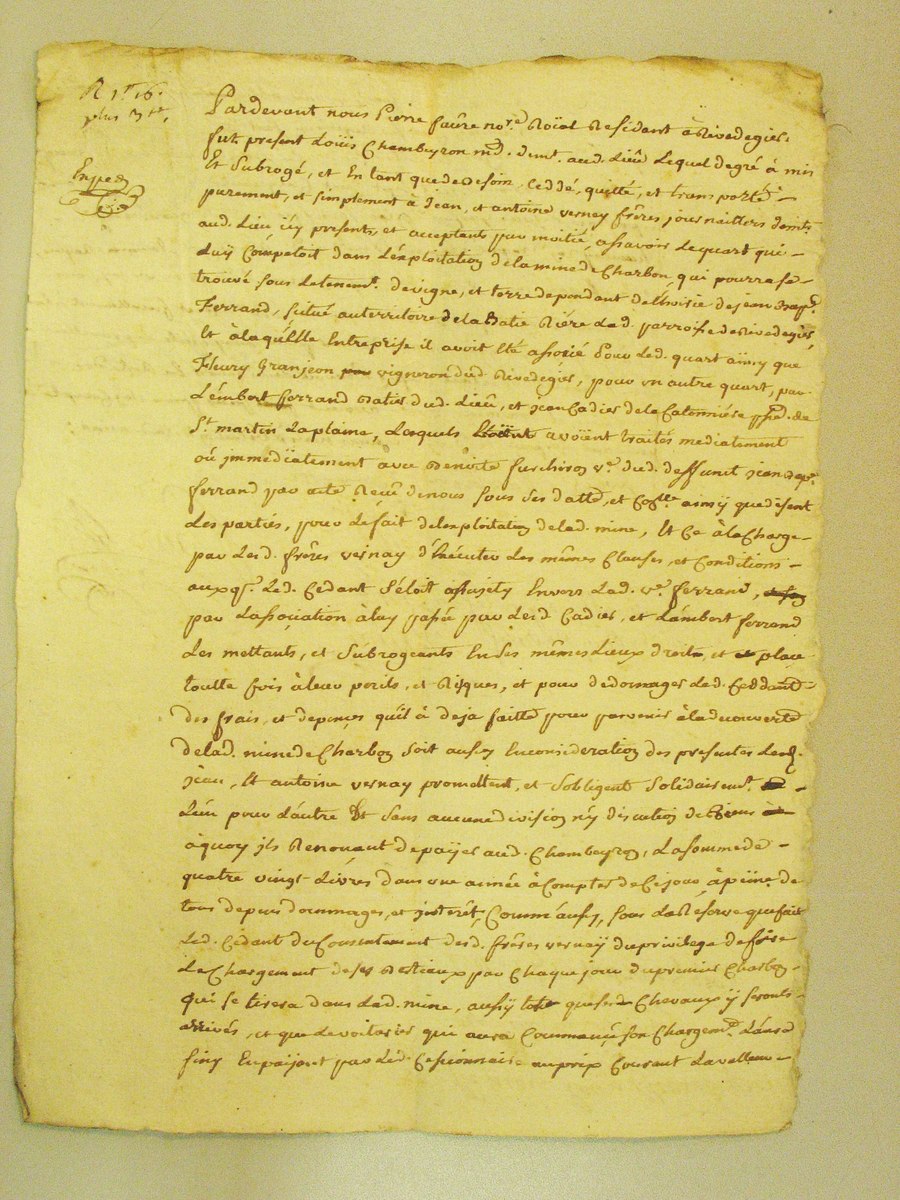 R 1# 16.
plus 3#.
Exped
Pardevant nous Pierre faûre no.re Roïal Residant à Rivedegies.
fut present Loüis Chambeyron md. demt. aud. Lieû Lequel degré à mis
Et Subrogé, et En tant que de besoin, Ceddé, quitté, et transporté
purement, et simplement à Jean, et antoine vernay frères journailiers demts.
aud. Lieu icy presents, et acceptants par moitié, assavoir Le quart qui
Luÿ Competoit dans L'éxploitation de la mine de Charbon, qui pourra se
trouvé sous Le tenemt. de vigne, et terre dependant de L'hoirie de jean Bapt.
Ferrand, situé au territoire de La Batie Riére Lad. parroisse de Rivedegiés,
Et à laquélle Entreprise il avoit Eté assosié pour Led. quart aïnsy que
Fleury Granjeon vigneron dud. Rivedegies, pour un autre quart, par
Lémbert ferrand dud. Lieû, et jean Cadier de la Catonniére de
St. martin La plaine, Lesquels avoïent traités mediatement
où immediatement avec Benoite furchiron ve. dud. deffunt jean Bapt.
ferrand par acte Reçû de nous sous Ses datte, et ainsy que disent
Les partiés, pour Le fait de L'exploitation de Lad. mine, Et Ce à la Charge
par Lesd. frères vernay d'éxécuter Les mêmes Clauses, et Conditions
auxqls. Led. Cedant S'étoit assujety Envers Lad. ve. ferrand,
par L'association à luy passée par Lesd. Cadier, et Lambert ferrand
Les mettants, et Subrogeants En Ses mêmes Lieux droits, et place
toutte fois à leur perils, et Risques, et pour dedomager Led. Ceddant
des frais, et depences qu'il à deja faitte pour parvenir à la decouverte
de Lad. mine de Charbon Soit aussy En consideration des presentes Lesd.
jean, Et antoine vernay promettent, et S'obligent Solidairemt.
L'ún pour L'autre Et Sans aucune division n'y discution de Biens
à quoy jls Renonçant de paÿer aud. Chambeyron, La somme de
quatre vingt Livres dans une année à Compter de Ce jour, à peine de
tous depens dommages, et jnterêt, Comme aussy, sous La Reserve que fait
Led. Cédant du Consentement desd. frères vernaÿ du privilege de faire
Le Chargement de ses Bestiaux par Chaque jour du premier Charbon
qui se tirera dans Lad. mine, aussÿ tot que ses Chevaux ÿ seront
arrivés, et que Le voiturier qui aura Commencé son Chargemt. L'aura
finy En païant par Led. Cessionnaire au prix Courant La valleur